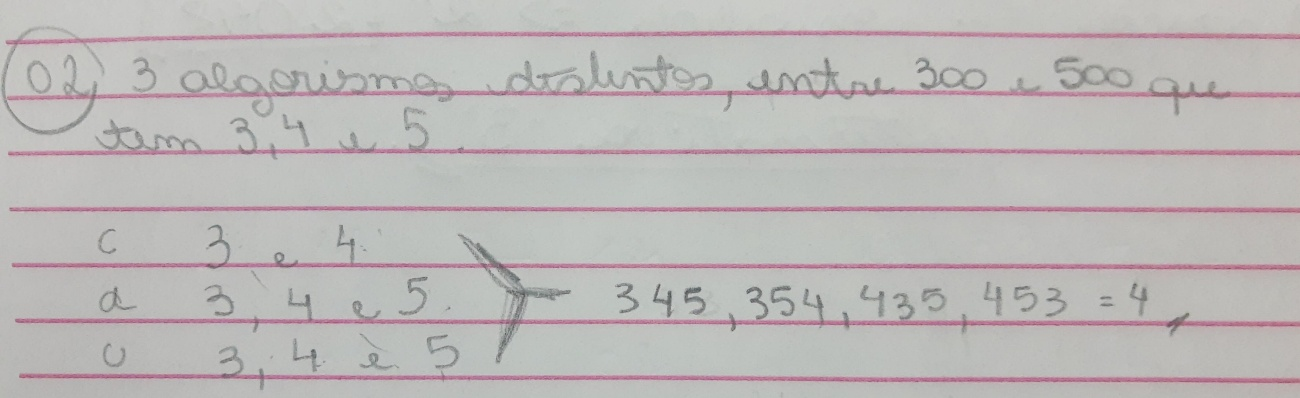 02) 3 algorismos distintos, entre 300 e 500 que
tem 3,4 e 5.
C 3 e 4.
d 3, 4 e 5. 345, 354, 435, 453 = 4
U 3, 4 e 5